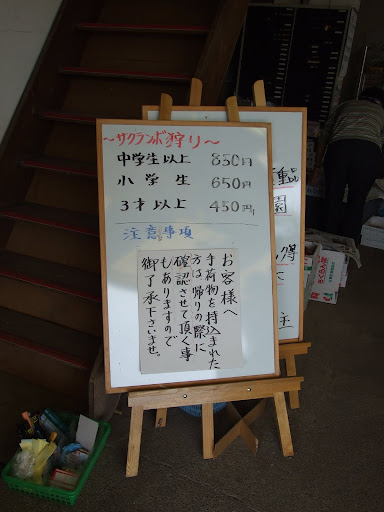 ~サクランボ狩り~
中学生以上 850円
小学生 650円
3才以上 450円
注意事項
お客様へ
手荷物を持込まれた
方は帰りの際に
確認させて頂く事
もありますので
御了承下さいませ。
園
主